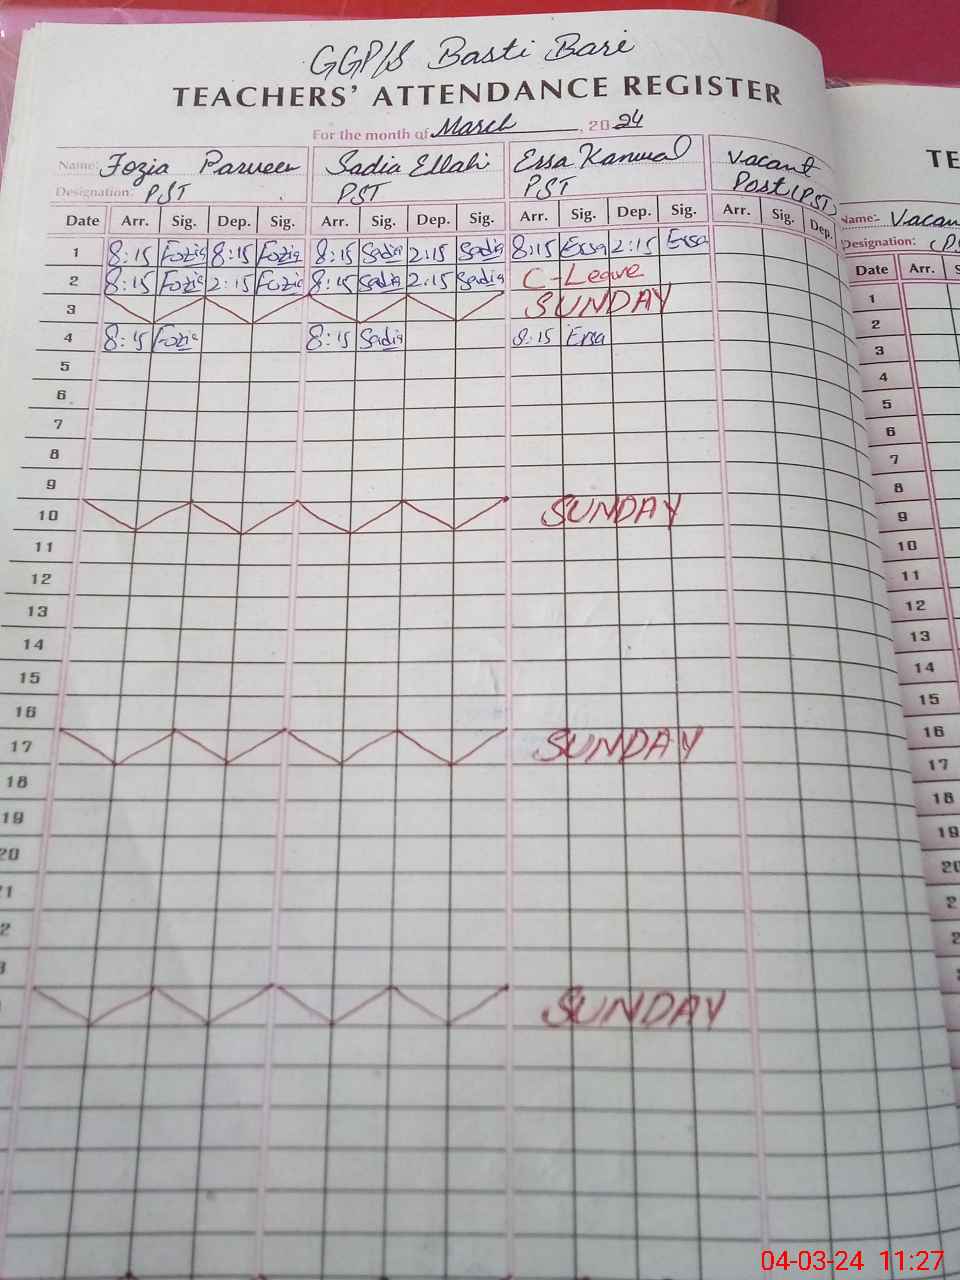 GGP/S Basti Bari
TEACHERS' ATTENDANCE REGISTER
For the month of March, 2024
Name: Fozia Parveen Sadia Ellahi Essa Kanwal Vacant
Designation: PST PST PST Post (PST)
Date Arr. Sig. Dep. Sig. Arr. Sig. Dep. Sig. Arr. Sig. Dep. Sig. Arr. Sig. Dep.
1 8:15 Fozia 8:15 Fozia 8:15 Sadia 2:15 Sadia 8:15 Essa 2:15 Essa
2 8:15 Fozia 2:15 Fozia 8:15 Sadia 2:15 Sadia C-Leave
3 SUNDAY
4 8:15 Fozia 8:15 Sadia 8:15 Essa
5
6
7
8
9
10 SUNDAY
11
12
13
14
15
16
17 SUNDAY
18
19
20
SUNDAY
TE
Name:- Vacan
Designation: (P
Date Arr.
1
2
3
4
5
6
7
8
9
10
11
12
13
14
15
16
17
18
19
04-03-24 11:27